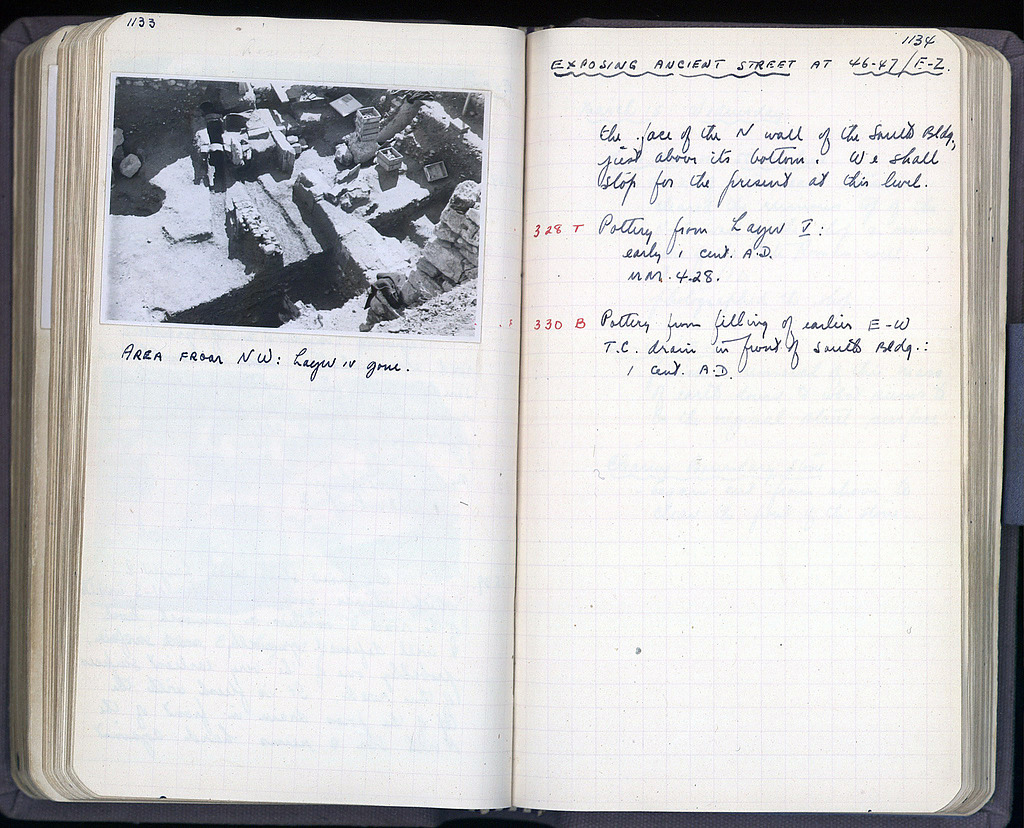 1133
AREA FROM NW: Layer IV gone.
1134
EXPOSING ANCIENT STREET AT 46-47/E-Z.
the face of the N wall of the South Bldg,
just above its bottom. We shall
stop for the present at this level.
328 T Pottery from Layer V:
early 1 cent. A.D.
NM. 4-28.
330 B Pottery from filling of earlier E-W
T.C. drain in front of South Bldg.:
1 cent. A.D.